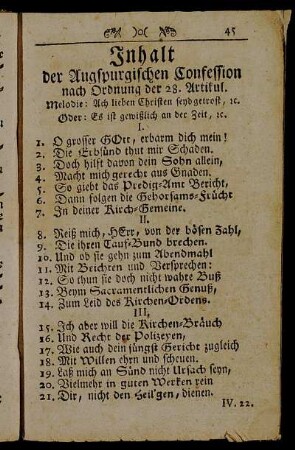 45
Inhalt
der Augspurgischen Confession
nach Ordnung der 28. Artikul.
Melodie: Ach lieben Christen seydgetrost, ꝛc.
Oder: Es ist gewißlich an der Zeit, ꝛc.
I.
1. O grosser GOtt, erbarm dich mein!
2. Die Erbsünd thut mir Schaden.
3. Doch hilft davon dein Sohn allein,
4. Macht mich gerecht aus Gnaden.
5. So giebt das Predig-Amt Bericht,
6. Dann folgen die Gehorsams-Frücht
7. In deiner Kirch-Gemeine.
II.
8. Reiß mich, HErr, von der bösen Zahl,
9. Die ihren Tauf-Bund brechen.
10. Und ob sie gehn zum Abendmahl
11. Mit Beichten und Versprechen:
12. So thun sie doch nicht wahre Buß
13. Beym Sacramentlichen Genuß,
14. Zum Leid des Kirchen-Ordens.
III,
15. Ich aber will die Kirchen-Bräuch
16. Und Recht der Polizeyen,
17. Wie auch dein jüngst Gericht zugleich
18. Mit Willen ehrn und scheuen.
19. Laß mich an Sünd nicht Ursach seyn,
20. Vielmehr in guten Werken rein
21. Dir, nicht den Heil'gen, dienen.
IV. 22.